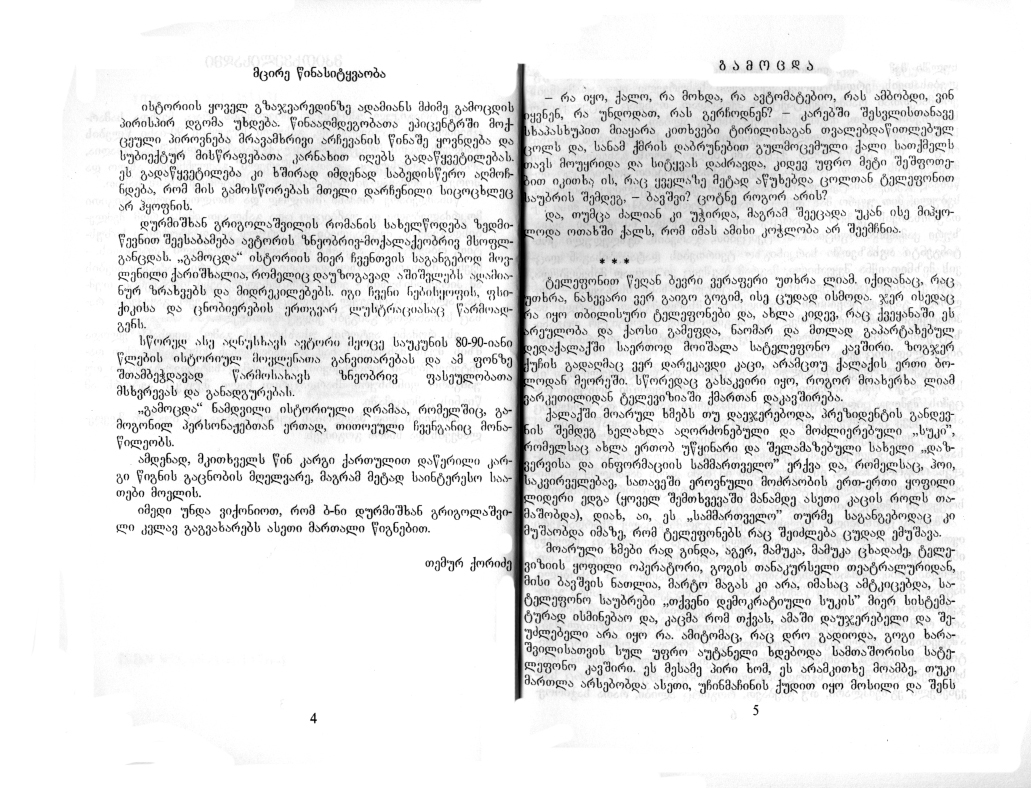 მცირე წინასიტყვაობა
ისტორიის ყოველ გზაჯვარედინზე ადამიანს მძიმე გამოცდის
პირისპირ დგომა უხდება. წინააღმდეგობათა ეპიცენტრში მოქ-
ცეული პიროვნება მრავამხრივი არჩევანის წინაშე ყოვნდება და
სუბიექტურ მისწრაფებათა კარნახით იღებს გადაწყვეტილებას.
ეს გადაწყვეტილება კი ხშირად იმდენად საბედისწერო აღმოჩ-
ნდება, რომ მის გამოსწორებას მთელი დარჩენილი სიცოცხლეც
არ ჰყოფნის.
დურმიშხან გრიგოლაშვილის რომანის სახელწოდება ზედმი-
წევნით შეესაბამება ავტორის ზნეობრივ-მოქალაქეობრივ მსოფლ-
განცდას. „გამოცდა“ ისტორიის მიერ ჩვენთვის საგანგებოდ მოვ-
ლენილი ქარიშხალია, რომელიც დაუზოგავად აშიშვლებს ადამია-
ნურ ზრახვებს და მიდრეკილებებს. იგი ჩვენი ნებისყოფის, ფსი-
ქიკისა და ცნობიერების ერთგვარ ლუსტრაციასაც წარმოად-
გენს.
სწორედ ასე აღნუსხავს ავტორი მეოცე საუკუნის 80-90-იანი
წლების ისტორიულ მოვლენათა განვითარებას და ამ ფონზე
შთამბეჭდავად წარმოსახავს ზნეობრივ ფასეულობათა
მსხვრევას და განადგურებას.
„გამოცდა“ ნამდვილი ისტორიული დრამაა, რომელშიც, გა-
მოგონილ პერსონაჟებთან ერთად, თითოეული ჩვენგანიც მონა-
წილეობს.
ამდენად, მკითხველს წინ კარგი ქართულით დაწერილი კარ-
გი წიგნის გაცნობის მღელვარე, მაგრამ მეტად საინტერესო საა-
თები მოელის.
იმედი უნდა ვიქონიოთ, რომ ბ-ნი დურმიშხან გრიგოლაშვი-
ლი კვლავ გაგვახარებს ასეთი მართალი წიგნებით.
თემურ ქორიძე
4
გამოცდა
– რა იყო, ქალო, რა მოხდა, რა ავტომატებიო, რას ამბობდი, ვინ
იყვნენ, რა უნდოდათ, რას გერჩოდნენ? – კარებში შესვლისთანავე
სხაპასხუპით მიაყარა კითხვები ტირილისაგან თვალებდაწითლებულ
ცოლს და, სანამ ქმრის დაბრუნებით გულმოცემული ქალი სათქმელს
თავს მოუყრიდა და სიტყვას დაძრავდა, კიდევ უფრო მეტი შეშფოთე-
ბით იკითხა ის, რაც ყველაზე მეტად აწუხებდა ცოლთან ტელეფონით
საუბრის შემდეგ, – ბავშვი? ცოტნე როგორ არის?
და, თუმცა ძალიან კი უჭირდა, მაგრამ შეეცადა უკან ისე მიჰყო-
ლოდა ოთახში ქალს, რომ იმას ამისი კოჭლობა არ შეემჩნია.
* * *
ტელეფონით წეღან ბევრი ვერაფერი უთხრა ლიამ. იქიდანაც, რაც
უთხრა, ნახევარი ვერ გაიგო გოგიმ, ისე ცუდად ისმოდა. ჯერ ისედაც
რა იყო თბილისური ტელეფონები და, ახლა კიდევ, რაც ქვეყანაში ეს
არეულობა და ქაოსი გამეფდა, ნაომარ და მთლად გაპარტახებულ
დედაქალაქში საერთოდ მოიშალა სატელეფონო კავშირი. ზოგჯერ
ქუჩის გადაღმაც ვერ დარეკავდი კაცი, არამცთუ ქალაქის ერთი ბო-
ლოდან მეორეში. სწორედაც გასაკვირი იყო, როგორ მოახერხა ლიამ
ვარკეთილიდან ტელევიზიაში ქმართან დაკავშირება.
ქალაქში მოარულ ხმებს თუ დაეჯერებოდა, პრეზიდენტის განდევ-
ნის შემდეგ ხელახლა აღორძინებული და მოძლიერებული „სუკი“,
რომელსაც ახლა ერთობ უწყინარი და შელამაზებული სახელი „დაზ-
ვერვისა და ინფორმაციის სამმართველო“ ერქვა და, რომელსაც, ჰოი,
საკვირველებავ, სათავეში ეროვნული მოძრაობის ერთ-ერთი ყოფილი
ლიდერი ედგა (ყოველ შემთხვევაში მანამდე ასეთი კაცის როლს თა-
მაშობდა), დიახ, აი, ეს „სამმართველო“ თურმე საგანგებოდაც კი
მუშაობდა იმაზე, რომ ტელეფონებს რაც შეიძლება ცუდად ემუშავა.
მოარული ხმები რად გინდა, აგერ, მამუკა, მამუკა ცხადაძე, ტელე-
ვიზიის ყოფილი ოპერატორი, გოგის თანაკურსელი თეატრალურიდან,
მისი ბავშვის ნათლია, მარტო მაგას კი არა, იმასაც ამტკიცებდა, სა-
ტელეფონო საუბრები „თქვენი დემოკრატიული სუკის“ მიერ სისტემა-
ტურად ისმინებაო და, კაცმა რომ თქვას, ამაში დაუჯერებელი და შე-
უძლებელი არა იყო რა. ამიტომაც, რაც დრო გადიოდა, გოგი ხარა-
შვილისათვის სულ უფრო აუტანელი ხდებოდა სამთაშორისი სატე-
ლეფონო კავშირი. ეს მესამე პირი ხომ, ეს არამკითხე მოამბე, თუკი
მართლა არსებობდა ასეთი, უჩინმაჩინის ქუდით იყო მოსილი და შენს
5